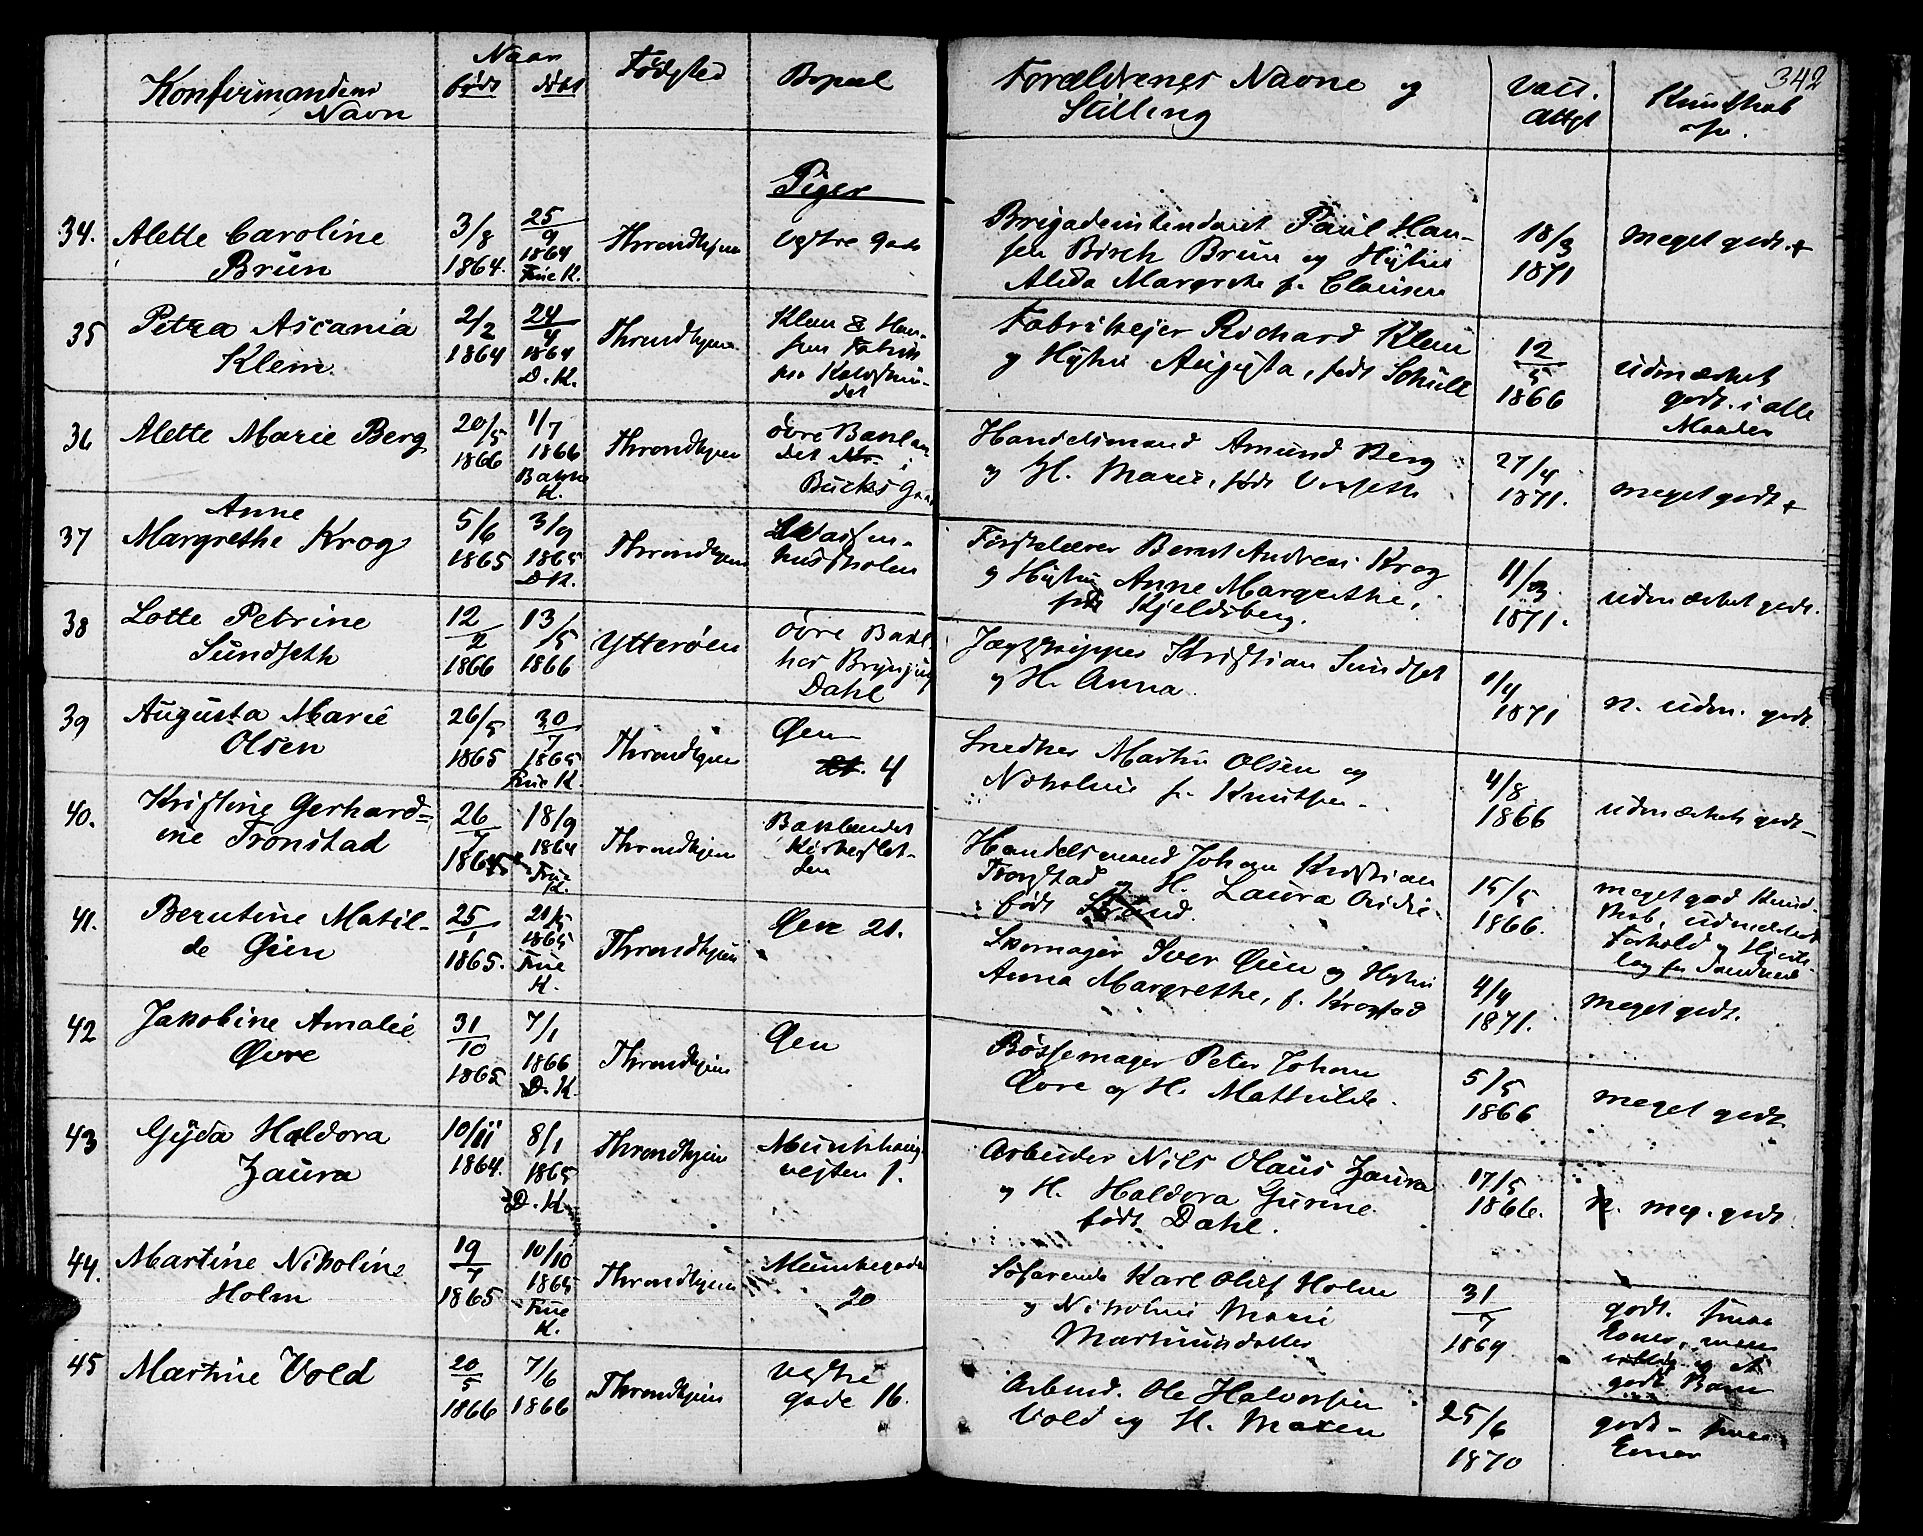 342
Konfirmandens Navn
Naar
født
døbt
Fødested
Bopæl
Forældrenes Navne og Stilling
Vacc. Attest
Kundskab
Piger
34. Alette Caroline Brun
3/8 1864.
25/9 1864 Frue K.
Throndhjem
Vestre Gade
Brigadeintendant Paul Hansen Birch Brun og Hustru Alida Margrete f. Clausen
18/3 1871
meget godt +
35 Petra Ascania Klem
2/2 1864
24/4 1864 D. K.
Throndhjem
Klem & Hansens Fabrik
Fabrikejer Richard Klem og Hustru Augusta, født Schult
12/5 1866
udmærket godt i alle Maader
36 Alette Marie Berg
20/5 1866
1/7 1866 Bakke K.
Throndhjem
øvre Baklandet Nr. i Bucks Gaard
Handelsmand Amund Berg og H. Marie, født
27/4 1871.
meget godt +
37 Anne Margrethe Krog
5/6 1865
3/9 1865 D K.
Throndhjem
Waisenhusskolen
Førstelærer Bernt Andreas Krog og Hustru Anne Margrethe, født Kjeldsberg.
11/3 1871.
udmærket godt.
38 Lotte Petrine Sundseth
12/2 1866
13/5 1866
Ytterøen
øvre Bakl hos Brynjulf Dahl
Jægtskipper Kristian Sundset og H. Anna.
1/4 1871
n. udm. godt.
39 Augusta Marie Olsen
26/5 1865
30/7 1865 Frue K.
Throndhjem
Øen 4
Snedker Martin Olsen og Nikoline f. Knutsen.
4/8 1866
udmærket godt
40. Kristine Gerhardine Tronstad
26/7 1864
18/9 1864 Frue K.
Throndhjem
Baklandet Kirkesletten
Handelsmand Johan Kristian Tronstad og H. Laura født Strand.
15/5 1866.
meget god Kundskab, udmærket Forhold og
41. Berntine Matilde Øien
25/1 1865.
21/5 1865 Frue K.
Throndhjem
Øen 21.
Skomager Iver Øien og Hustru Anna Margrethe, f. Krogstad
4/4 1871.
meget godt.
42 Jakobine Amalie Øvre
31/10 1865
7/1 1866 D. K.
Throndhjem
Øen
Bøssemager Peter Johan Øvre og H. Mathilde.
5/5 1866
meget godt
43 Gyda Haldora Zaura
10/11 1864.
8/1 1865 D. K.
Throndhjem
Munkhaugvejten 1.
Arbeider Nils Olaus Zaura og H. Haldora Gurine født Dahl.
17/5 1866.
n. meg. godt
44. Martine Nikoline Holm
19/7 1865
10/10 1865 Frue K.
Throndhjem
Munkegade 20
Søfarende Karl Oluf Holm og Nikoline Marie Martinusdatter
31/7 1869
godt. smaa Evner, men godt Barn
45 Martine Vold
20/5 1866
7/6 1866
Throndhjem
Vestre gade 16.
Arbeid. Ole Halvorsen Vold og H. Maren
25/6 1870
godt - smaa Evner